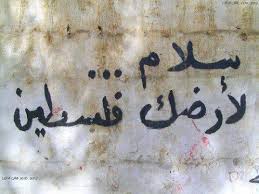 سلام ....
لأرضك فلسطين